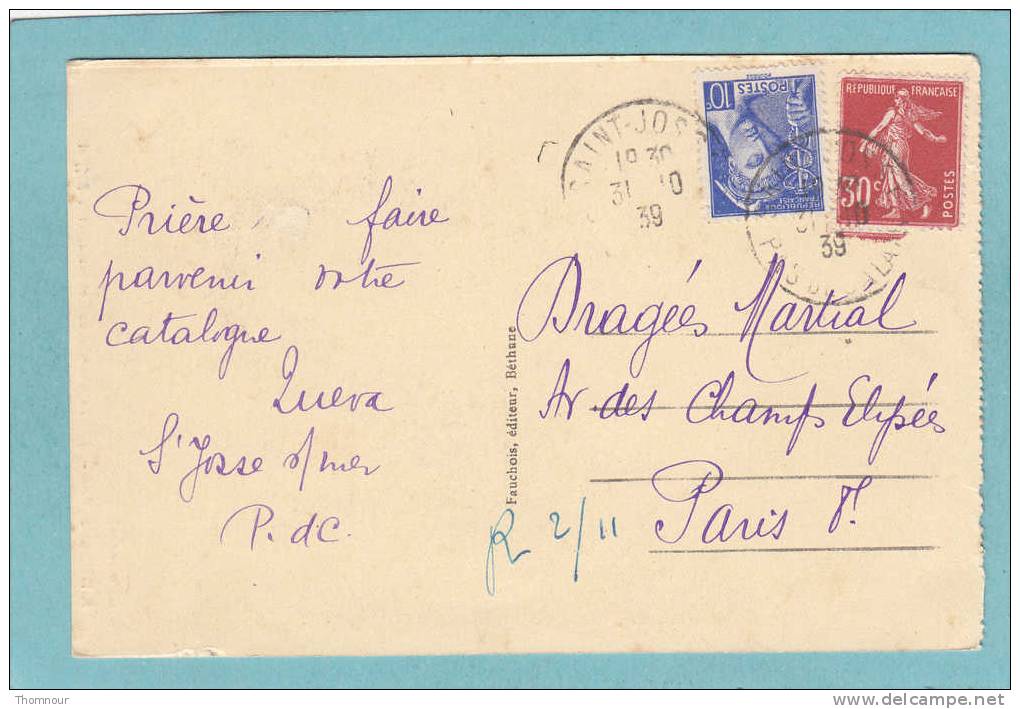 Prière faire
parvenir votre
catalogue
Queva
St Josse s/mer
P. d C.
Fauchois, éditeur, Béthune
SAINT-JOS
18 30
31 10
39
10c
POSTES
REPUBLIQUE
FRANÇAISE
REPUBLIQUE FRANÇAISE
30c
POSTES
39
Dragées Martial
Av des Champs Elysées
Paris 8e
R 2/11
Thomnour
www.delcampe.net